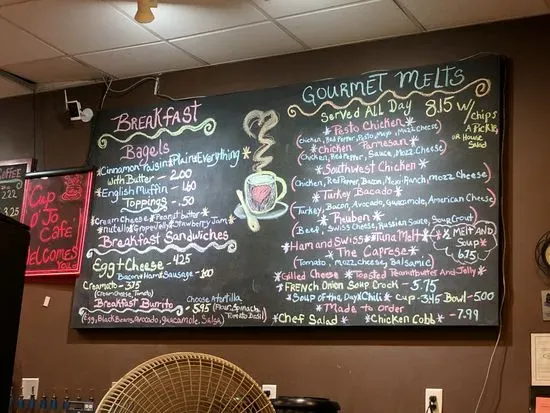 COFFEE
2.22
3.25
Kup
O' Jo
Café
Welcomes
You
BREAKFAST
Bagels
*Cinnamon Raisin*Plain*Everything*
with Butter - 2.00
*English Muffin - 1.60
Toppings - .50
*Cream Cheese *Peanut butter*
*nutella*Grape Jelly*Strawberry Jam*
Breakfast Sandwiches
Egg + Cheese - 4.25
Bacon*Ham*Sausage - 1.00
Creamato - 3.75
(Cream Cheese, Tomato)
Breakfast Burrito - 5.95
Choose A tortilla
(Flour, Spinach, Tomato Basil)
(Egg, Black Beans, Avocado, Guacamole, Salsa)
GOURMET MELTS
Served All Day 8.15 w/chips
A PICKLE
OR House
Salad
*Pesto Chicken*
(Chicken, Red Pepper, Pesto, Mayo, Mozz Cheese)
*Chicken Parmesan*
(Chicken, Red Pepper, Sauce, Mozz Cheese)
*Southwest Chicken*
(Chicken, Red Pepper, Bacon, Ranch, Mozz Cheese)
*Turkey Bacado*
(Turkey, Bacon, Avocado, Guacamole, American Cheese)
*Reuben*
(Beef, Swiss Cheese, Russian Sauce, Sour Crout)
*Ham and Swiss* *Tuna Melt*
*The Caprese*
(Tomato, Mozz Cheese, Balsamic)
*½ MELT AND
Soup*
6.75
*Grilled Cheese *Toasted Peanut butter And Jelly*
*FRENCH Onion Soup Crock - 5.75
*Soup of the Day*Chili* Cup - 3.45 Bowl - 5.00
*Made to Order*
Chef Salad *Chicken Cobb* - 7.99